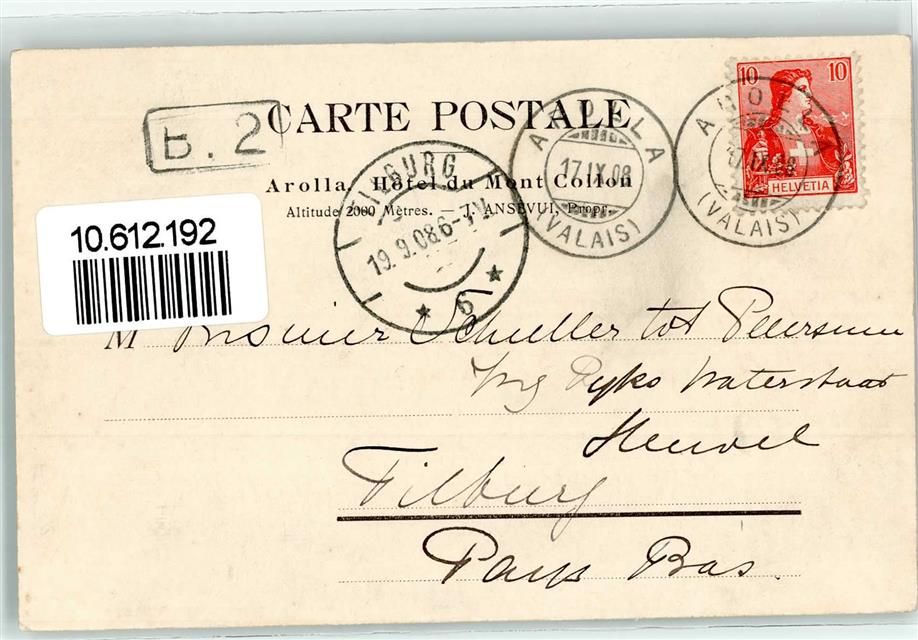 10 10
HELVETIA
CARTE POSTALE
B. 2
AROLLA
17.IX.08
(VALAIS)
AROLLA
17.IX.08
(VALAIS)
Arolla, Hôtel du Mont Collon
Altitude 2000 Mètres. — J. ANSEVUI, Propr.
TILBURG
19.9.08 6-7 V.
* 6 *
10.612.192
M Schuller tot Peursum
Ing Ryks Waterstaat
Heuvel
Tilburg
Pays Bas.